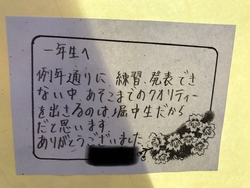 一年生へ
例年通りに 練習、発表でき
ない中 あそこまでのクオリティー
を出せるのは 堀中生だから
だと思います
ありがとうございました